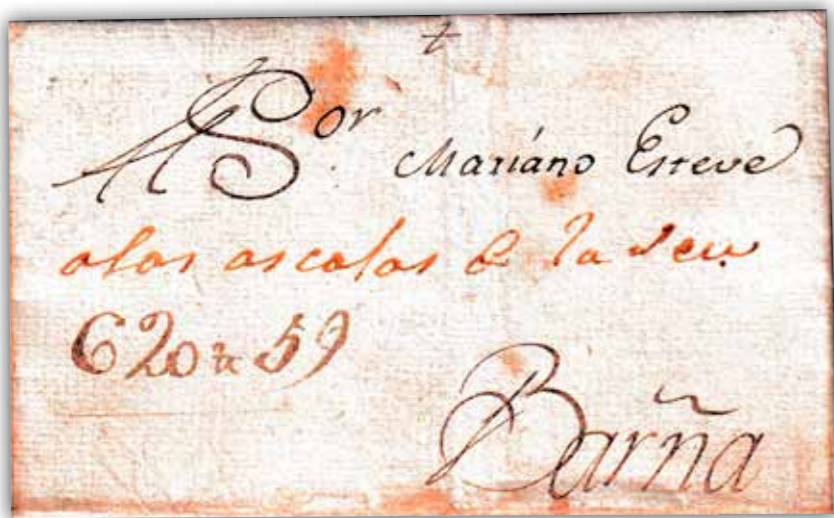 +
Al Sor Mariano Esteve
a las ascalas de la Seu
C 20 n 59
Barña